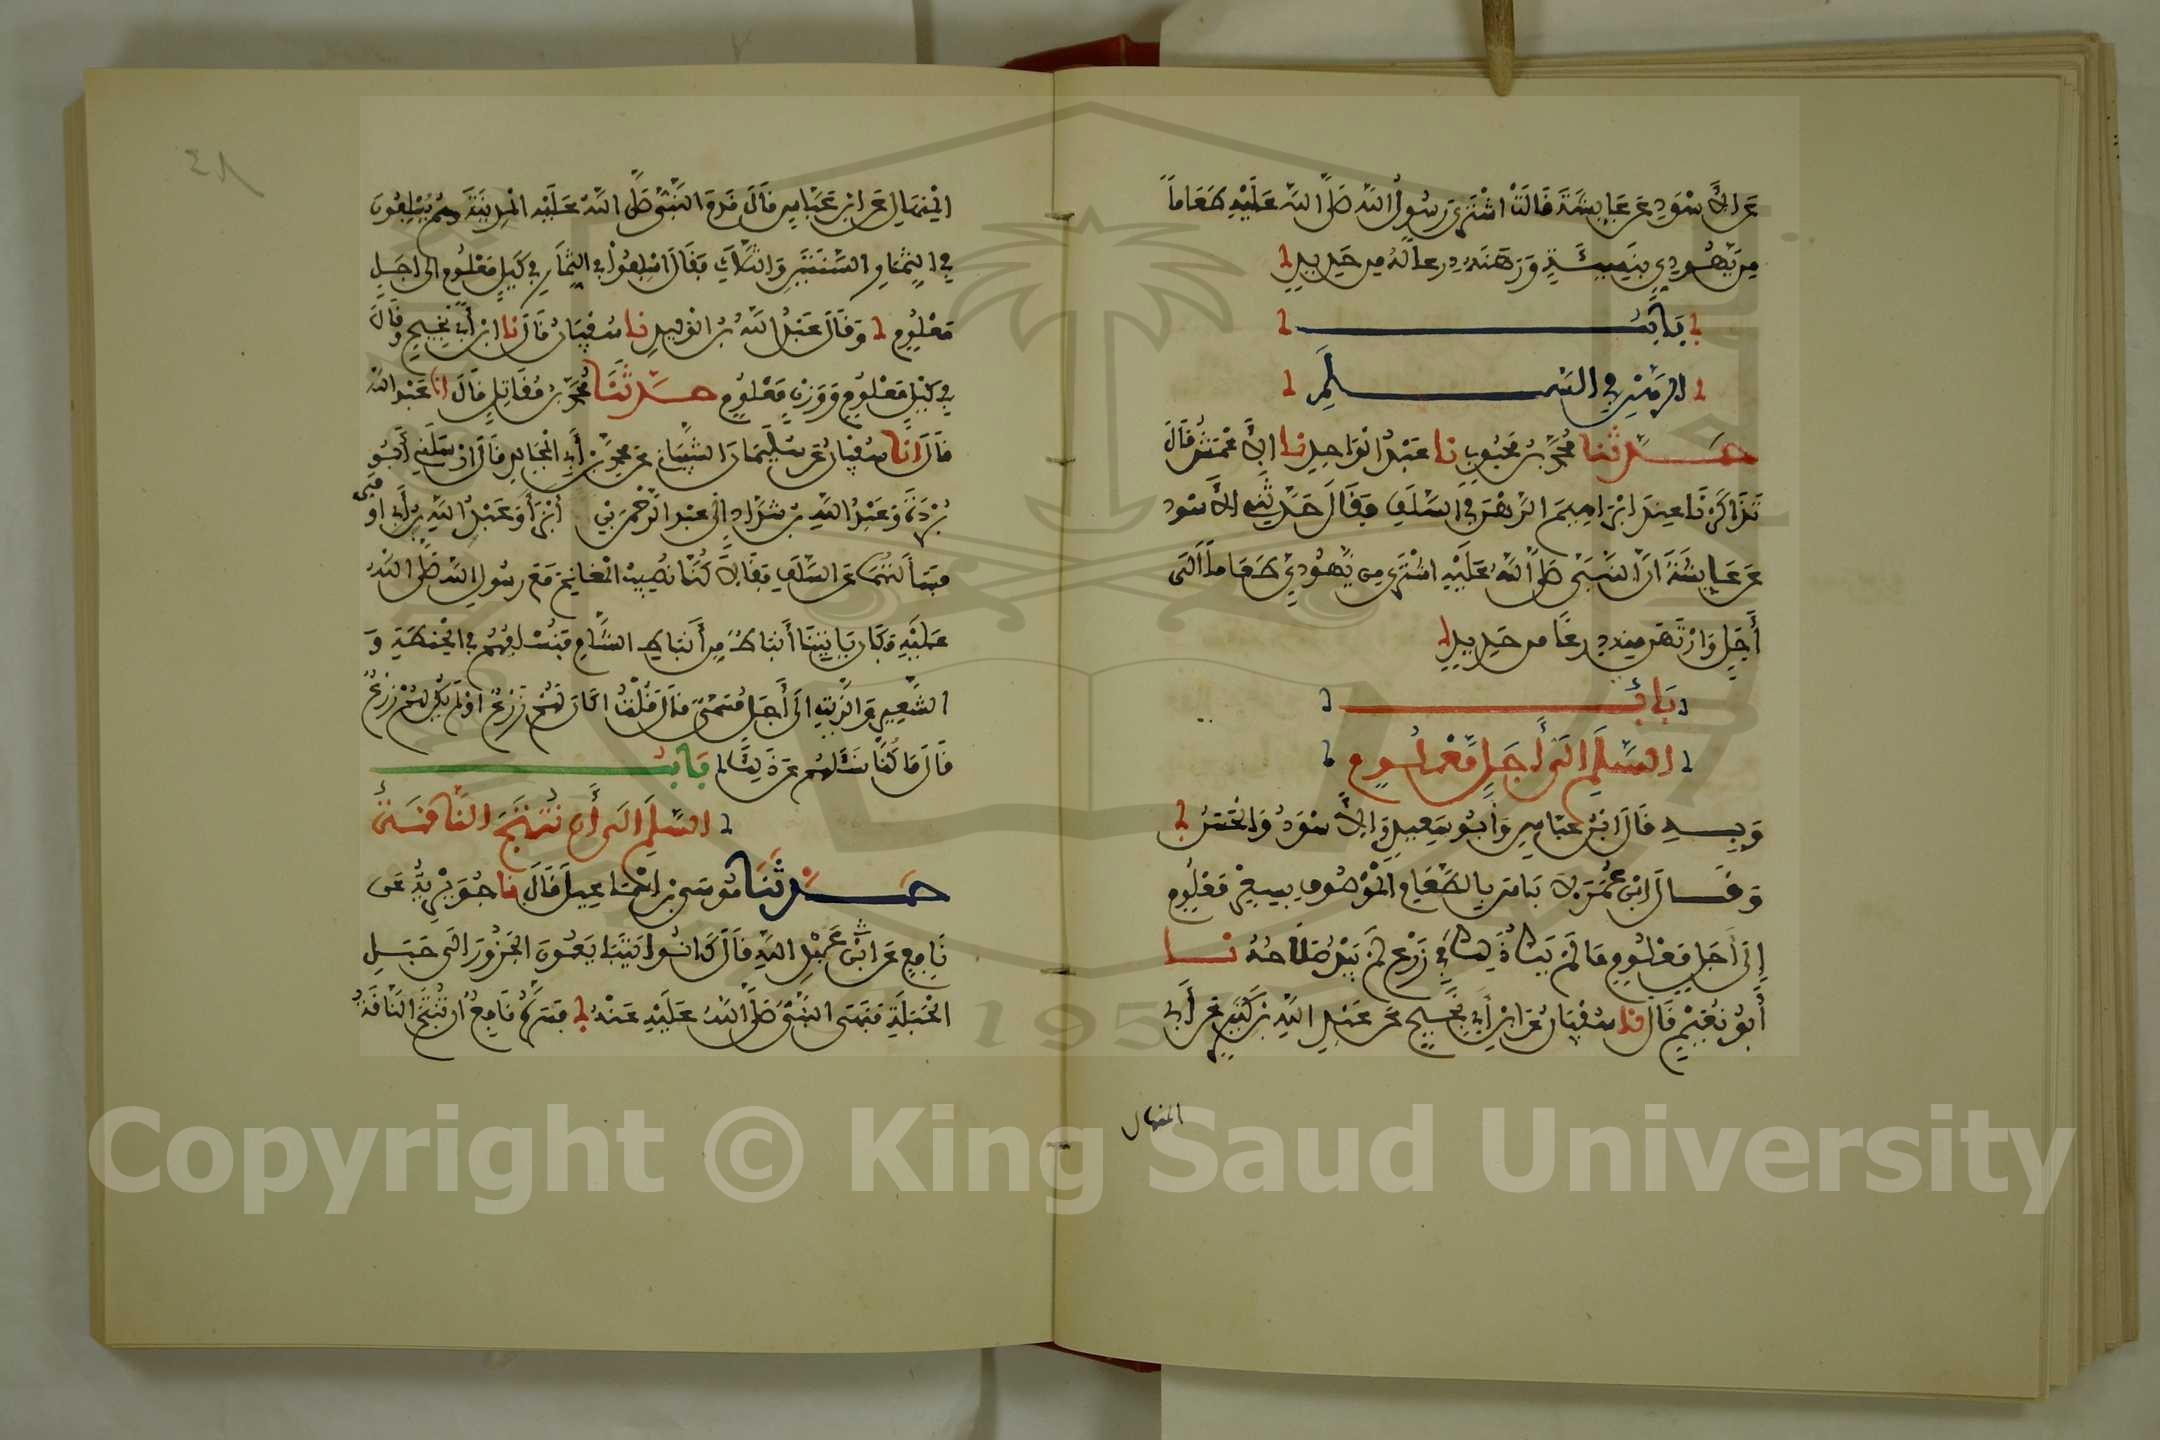 عَنِ الأَسْوَدِ عَنْ عَائِشَةَ قَالَتْ اشْتَرَى رَسُولُ اللَّهِ صَلَّى اللَّهُ عَلَيْهِ طَعَاماً
مِنْ يَهُودِيٍّ بِنَسِيئَةٍ وَرَهَنَهُ دِرْعاً لَهُ مِنْ حَدِيدٍ
بَابُ
الرَّهْنِ فِي السَّلَمِ
حَدَّثَنَا مُحَمَّدُ بْنُ مَحْبُوبٍ نا عَبْدُ الْوَاحِدِ نا الأَعْمَشُ قَالَ
تَذَاكَرْنَا عِنْدَ ابْرَاهِيمَ الرَّهْنَ فِي السَّلَفِ فَقَالَ حَدَّثَنِي الأَسْوَدُ
عَنْ عَائِشَةَ أَنَّ النَّبِيَّ صَلَّى اللَّهُ عَلَيْهِ اشْتَرَى مِنْ يَهُودِيٍّ طَعَاماً الَى
أَجَلٍ وَارْتَهَنَ مِنْهُ دِرْعًا مِنْ حَدِيدٍ
بَابُ
السَّلَمِ الَى أَجَلٍ مَعْلُومٍ
وَبِهِ قَالَ ابْنُ عَبَّاسٍ وَأَبُو سَعِيدٍ وَالأَسْوَدُ وَالْحَسَنُ
وَقَالَ ابْنُ عُمَرَ لَا بَاسَ بِالطَّعَامِ الْمَوْصُوفِ بِسِعْرٍ مَعْلُومٍ
إِلَى أَجَلٍ مَعْلُومٍ مَا لَمْ يَكُ ذَلِكَ فِي زَرْعٍ لَمْ يَبْدُ صَلَاحُهُ نا
أَبُو نُعَيْمٍ قَالَ نا سُفْيَانُ عَنِ ابْنِ أَبِي نَجِيحٍ عَنْ عَبْدِ اللَّهِ بْنِ كَثِيرٍ عَنْ أَبِي
المنهال
٤٨
الْمِنْهَالِ عَنِ ابْنِ عَبَّاسٍ قَالَ قَدِمَ النَّبِيُّ صَلَّى اللَّهُ عَلَيْهِ الْمَدِينَةَ وَهُمْ يُسْلِفُونَ
فِي الثِّمَارِ السَّنَتَيْنِ وَالثَّلَاثَ فَقَالَ أَسْلِفُوا فِي الثِّمَارِ فِي كَيْلٍ مَعْلُومٍ الى أَجَلٍ
مَعْلُومٍ وَقَالَ عَبْدُ اللَّهِ بْنُ الْوَلِيدِ نا سُفْيَانُ قَالَ نا ابْنُ أَبِي نَجِيحٍ وَقَالَ
فِي كَيْلٍ مَعْلُومٍ وَوَزْنٍ مَعْلُومٍ حَدَّثَنَا مُحَمَّدُ بْنُ مُقَاتِلٍ قَالَ انا عَبْدُ اللَّهِ
قَالَ انَا سُفْيَانُ عَنْ سُلَيْمَانَ الشَّيْبَانِيِّ عَنْ مُحَمَّدِ بْنِ أَبِي الْمُجَالِدِ قَالَ أَرْسَلَنِي أَبُو
بُرْدَةَ وَعَبْدُ اللَّهِ بْنُ شَدَّادٍ إِلَى عَبْدِ الرَّحْمَنِ بْنِ أَبْزَى وَعَبْدِ اللَّهِ بْنِ أَبِي أَوْفَى
فَسَأَلْتُهُمَا عَنِ السَّلَفِ فَقَالَا كُنَّا نُصِيبُ الْمَغَانِمَ مَعَ رَسُولِ اللَّهِ صَلَّى اللَّهُ
عَلَيْهِ فَكَانَ يَاتِينَا أَنْبَاطٌ مِنْ أَنْبَاطِ الشَّامِ فَنُسْلِفُهُمْ فِي الْحِنْطَةِ وَ
الشَّعِيرِ وَالزَّيْتِ الَى أَجَلٍ مُسَمًّى قَالَ قُلْتُ اكَانَ لَهُمْ زَرْعٌ اوْ لَمْ يَكُنْ لَهُمْ زَرْعٌ
قَالَ مَا كُنَّا نَسْأَلُهُمْ عَنْ ذَلِكَ بَابُ
السَّلَمِ الَى أَن تُنْتَجَ النَّاقَةُ
حَدَّثَنَا مُوسَى بْنُ اسْمَاعِيلَ قَالَ نا جُوَيْرِيَةُ عَنْ
نَافِعٍ عَنِ ابْنِ عَبْدِ اللَّهِ قَالَ كَانُوا يَتَبَايَعُونَ الْجَزُورَ الَى حَبَلِ
الْحَبَلَةِ فَنَهَى النَّبِيُّ صَلَّى اللَّهُ عَلَيْهِ عَنْهُ فَسَّرَهُ نَافِعٌ ان تُنْتَجَ النَّاقَةُ
Copyright © King Saud University
195